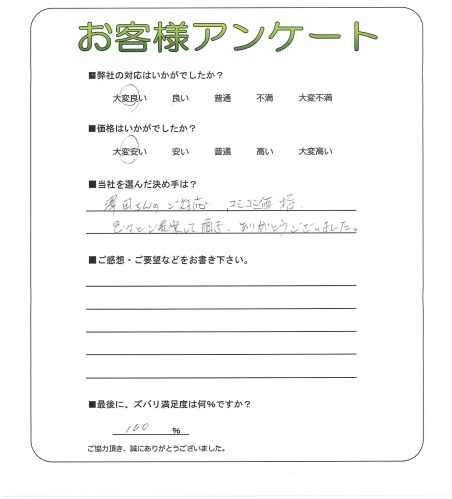 お客様アンケート
■弊社の対応はいかがでしたか？
大変良い 良い 普通 不満 大変不満
■価格はいかがでしたか？
大変安い 安い 普通 高い 大変高い
■当社を選んだ決め手は？
澤田さんのご対応、コミコミ価格、
色々とご提案して頂き、ありがとうございました。
■ご感想・ご要望などをお書き下さい。
■最後に、ズバリ満足度は何％ですか？
100 ％
ご協力頂き、誠にありがとうございました。